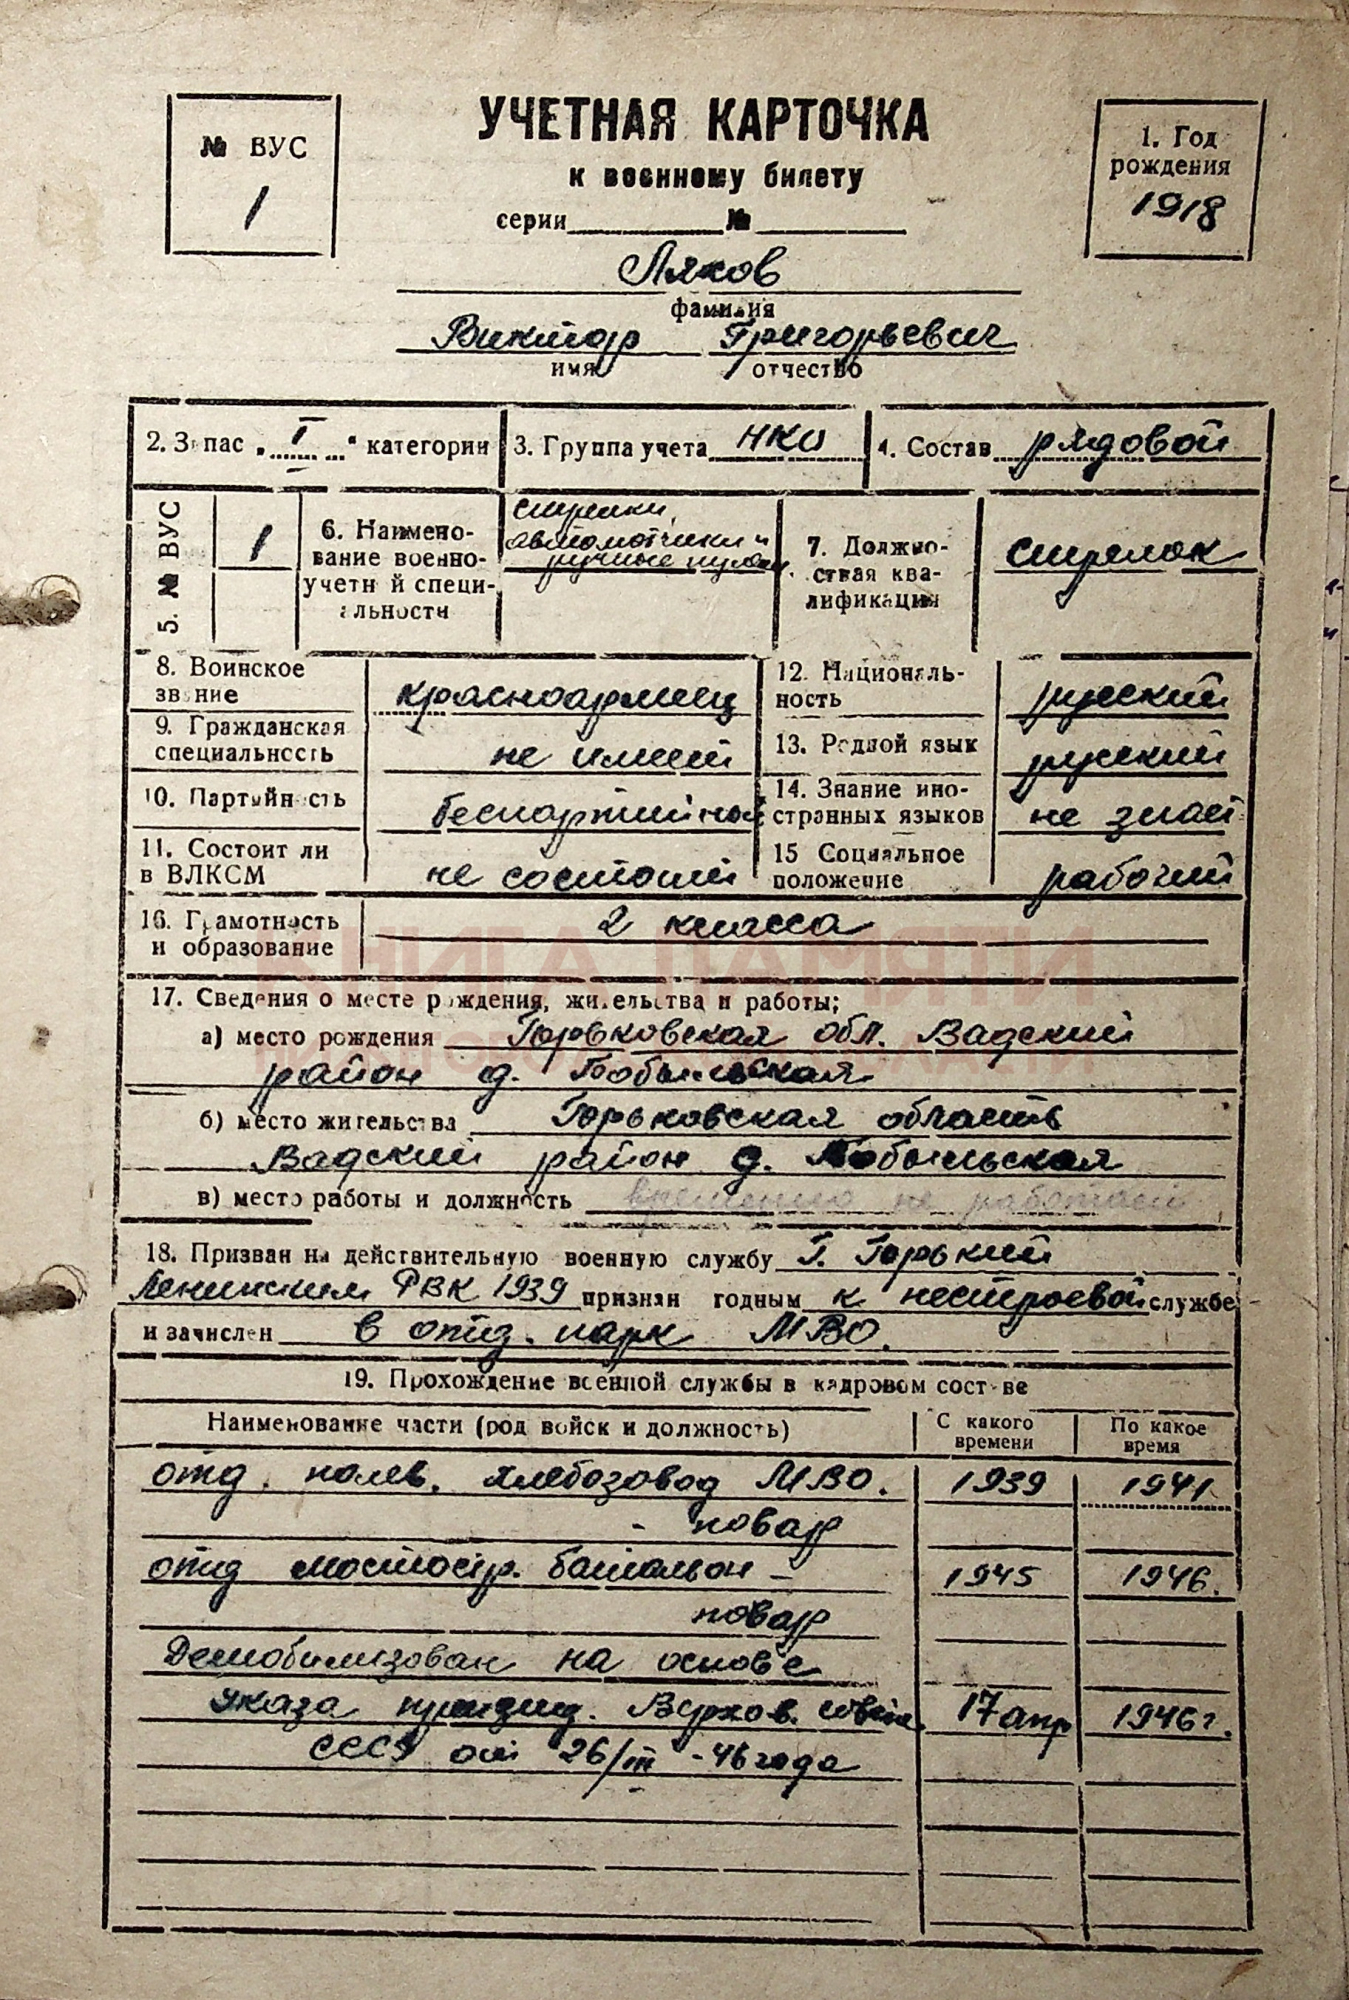 УЧЕТНАЯ КАРТОЧКА
к военному билету
серии № 
№ ВУС
1
1. Год
рождения
1918
Ляхов
фамилия
Виктор Григорьевич
имя отчество
2. Запас „ I " категории
3. Группа учета НКО
4. Состав рядовой
5. № ВУС
1
6. Наимено-
вание военно-
учетной специ-
альности
стрелки,
автоматчики и
ручные пулем.
7. Должно-
стная ква-
лификация
стрелок
8. Воинское
звание
красноармеец
9. Гражданская
специальность
не имеет
10. Партийность
беспартийный
11. Состоит ли
в ВЛКСМ
не состоит
12. Националь-
ность
русский
13. Родной язык
русский
14. Знание ино-
странных языков
не знает
15 Социальное
положение
рабочий
16. Грамотность
и образование
2 класса
КНИГА ПАМЯТИ
17. Сведения о месте рождения, жительства и работы;
а) место рождения Горьковская обл. Вадский
район д. Бобыльская
б) место жительства Горьковская область
Вадский район д. Бобыльская
в) место работы и должность временно не работает
18. Призван на действительную военную службу Г. Горький
Ленинским РВК 1939 признан годным к нестроевой службе
и зачислен в отд. парк МВО.
19. Прохождение военной службы в кадровом составе
Наименование части (род войск и должность)
С какого
времени
По какое
время
отд. полев. хлебозавод МВО. 1939 1941
- повар
отд мостостр. батальон - 1945 1946.
повар
Демобилизован на основе
Указа президиу. Верхов. совета 17 апр 1946 г.
СССР от 26/III - 46 года